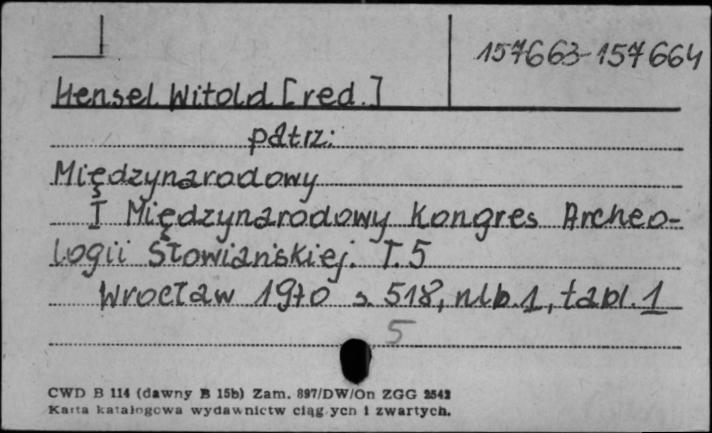 157663-157664
Hensel Witold [red.]
patrz:
Międzynarodowy
I Międzynarodowy Kongres Archeo-
logii Słowiańskiej. T. 5
Wrocław 1970 s. 518, nlb. 1, tabl. 1
5
CWD B 114 (dawny B 15b) Zam. 897/DW/On ZGG 2542
Karta katalogowa wydawnictw ciągłych i zwartych.